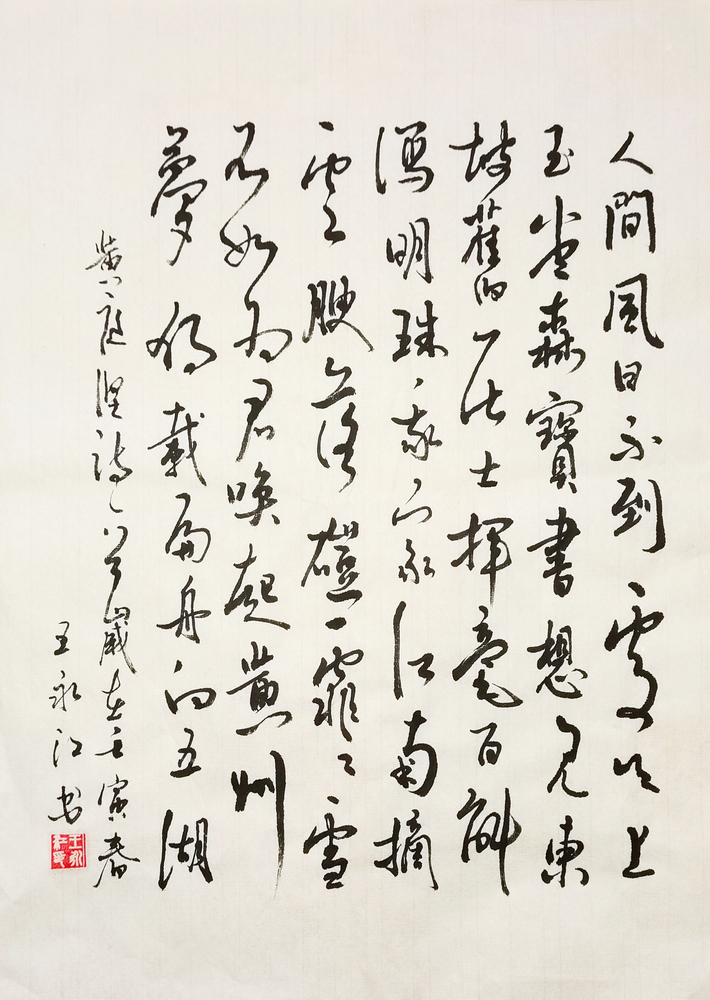 人間風日不到處天上
玉堂森寶書想見東
坡舊居士揮毫百斛
瀉明珠我家江南摘
雲腴落磑霏〻雪
不如為君喚起黃州
夢獨載扁舟向五湖
黃庭堅詩一首歲在壬寅春
王永江书
王永江印